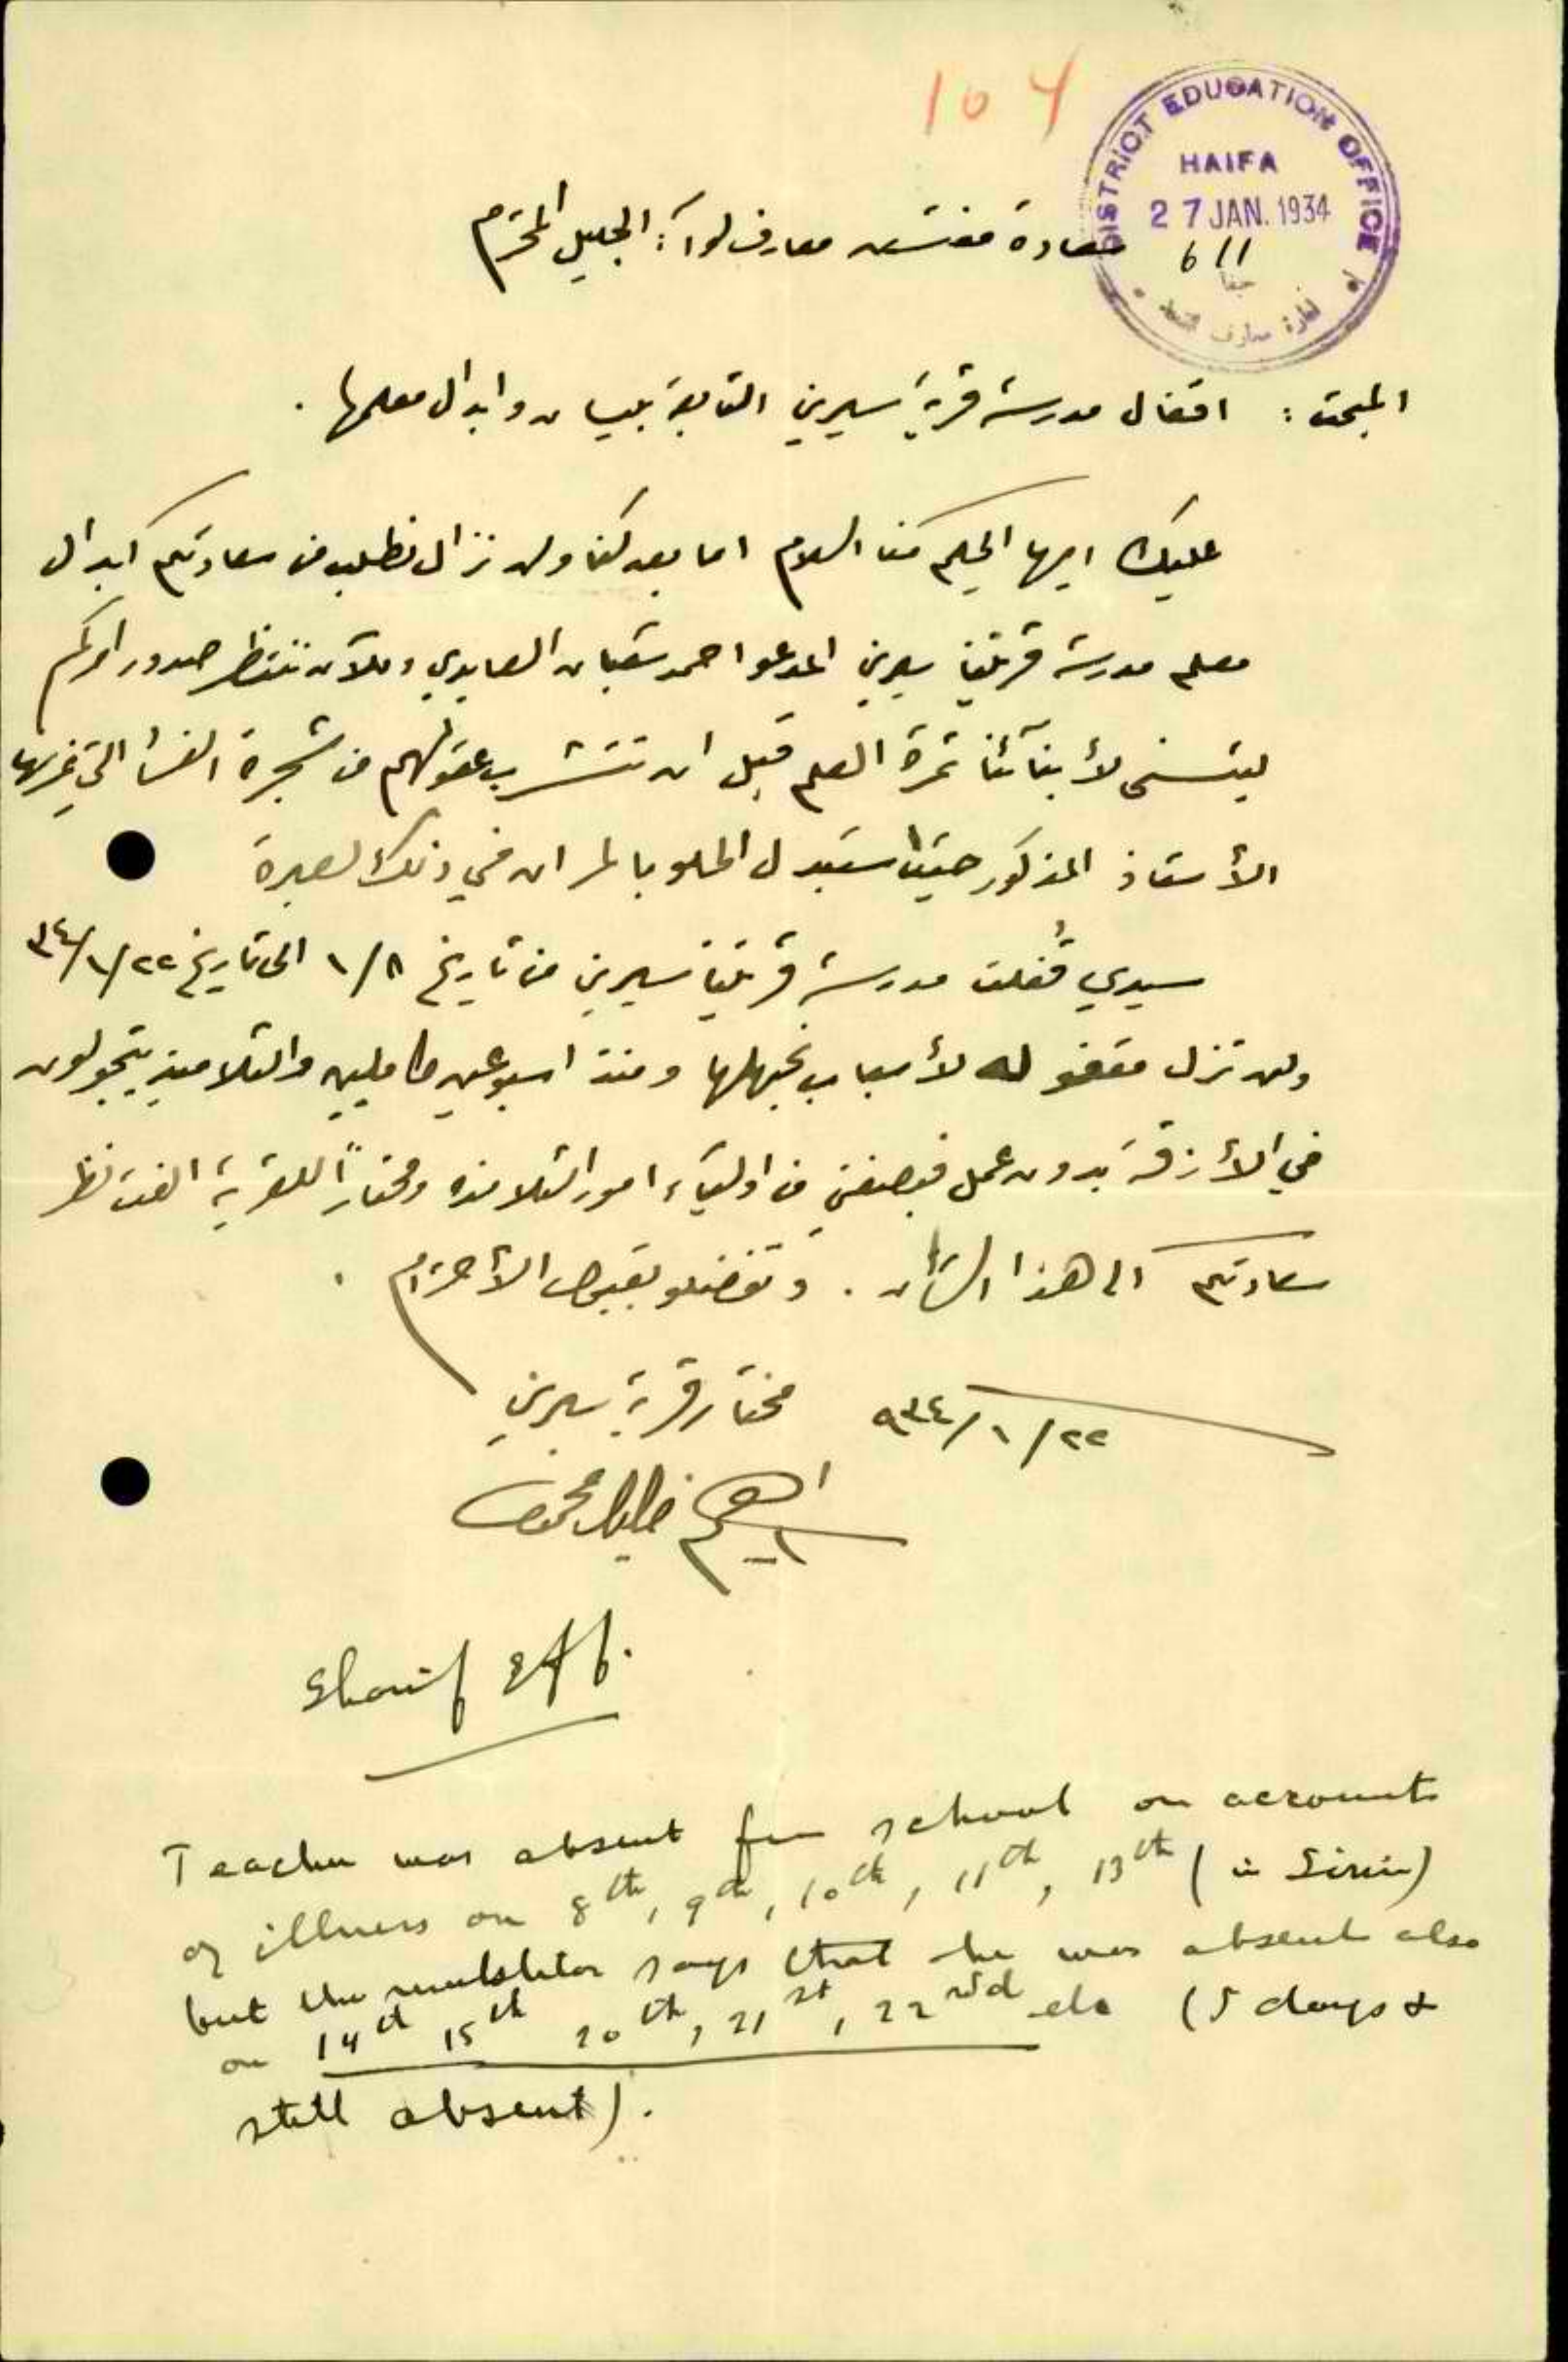 104
DISTRICT EDUCATION OFFICE
HAIFA
27 JAN. 1934
611
حيفا
سعادة مفتش معارف لوآء الجليل المحترم
المبحث : اقفال مدرسة قرية سيرين التابعة بيسان وابدال معلمها .
عليك ايها الحكيم منا السلام اما بعد كنا ولم نزال نطلب من سعادتكم ابدال
معلم مدرسة قريتنا سيرين المدعوا احمد شعبان العابدي وللآن ننتظر صدور امركم
ليتسنى لأبنآئنا ثمرة العلم قبل ان تتشرب عقولهم من شجرة التي غرسها
الأستاذ المذكور حيث استبدل الحلو بالمر ان في ذلك لعبرة
سيدي قُفلت مدرسة قريتنا سيرين من تاريخ ١/٨ الى تاريخ ٣٤/١/٢٢
ولم تزل مقفوله لأسباب نجهلها ومنذ اسبوعين كاملين والتلاميذ يتجولون
في الأزقة بدون عمل فبصفتي من اوليآء امور التلامذه ومختاراً للقرية الفت نظر
سعادتكم الى هذا الشأن . وتفضلو بقبول الأحترام .
٩٣٤/١/٢٢ مختار قرية سيرين
ابراهيم خليل
Sharif Eff.
Teacher was absent from school on account
of illness on 8th, 9th, 10th, 11th, 13th (in Sirin)
but the mukhtar says that he was absent also
on 14th 15th 20th, 21st, 22nd etc (5 days &
still absent).